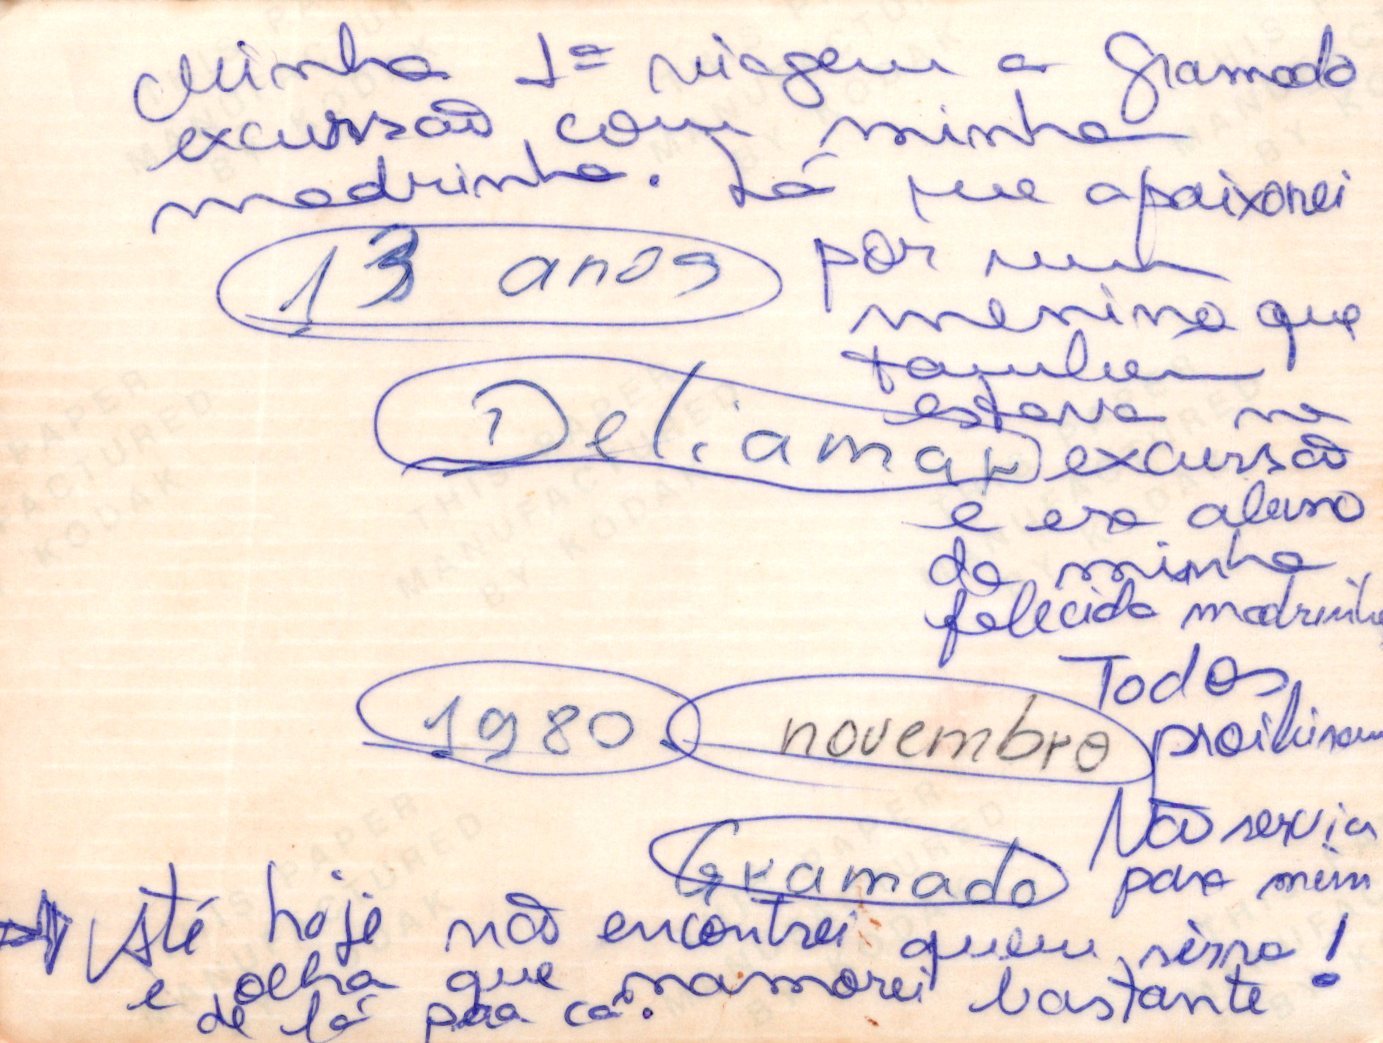 Minha 1ª viagem a Gramado
excursão com minha
madrinha. Lá me apaixonei
13 anos
por um
menino que
também
estava na
Deliamar
excursão
e era aluno
da minha
falecida madrinha
Todos
1980 novembro
proibiram
Não servia
para mim
Gramado
Até hoje não encontrei quem sirva!
e olha que namorei bastante
de lá pra cá.
THIS PAPER
MANUFACTURED
BY KODAK